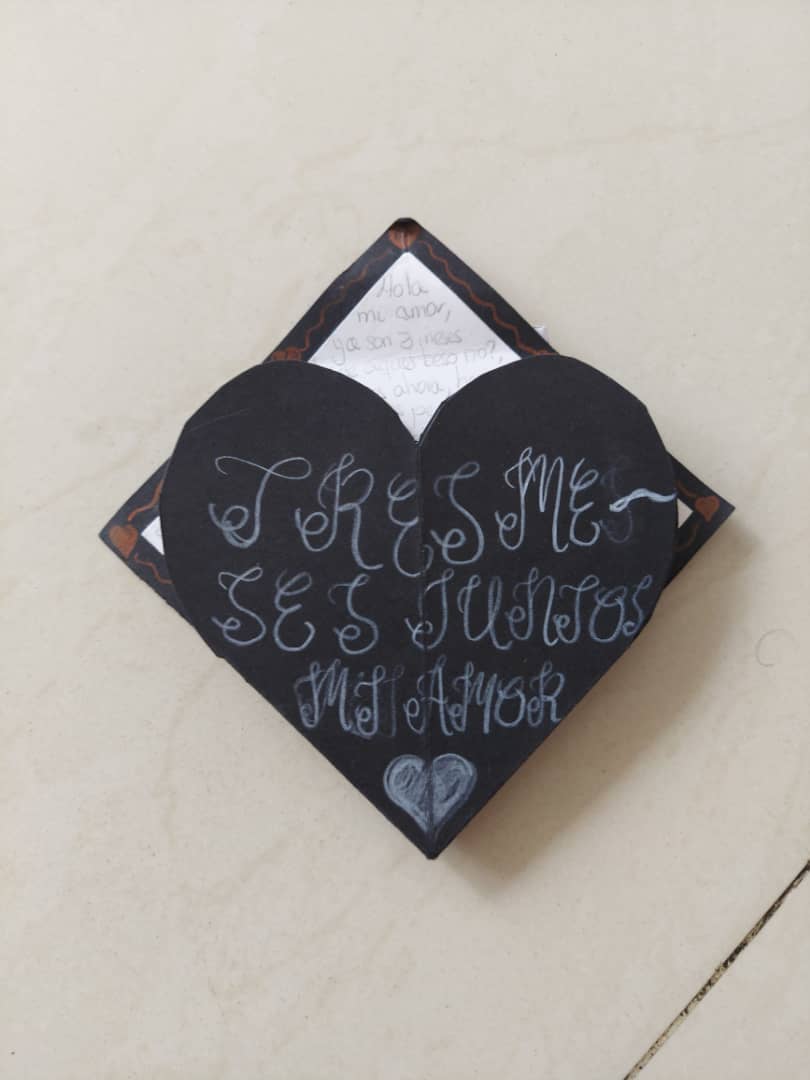 Hola
mi amor,
ya son 3 meses
beso no?,
ahora,
TRES ME-
SES JUNTOS
MI AMOR